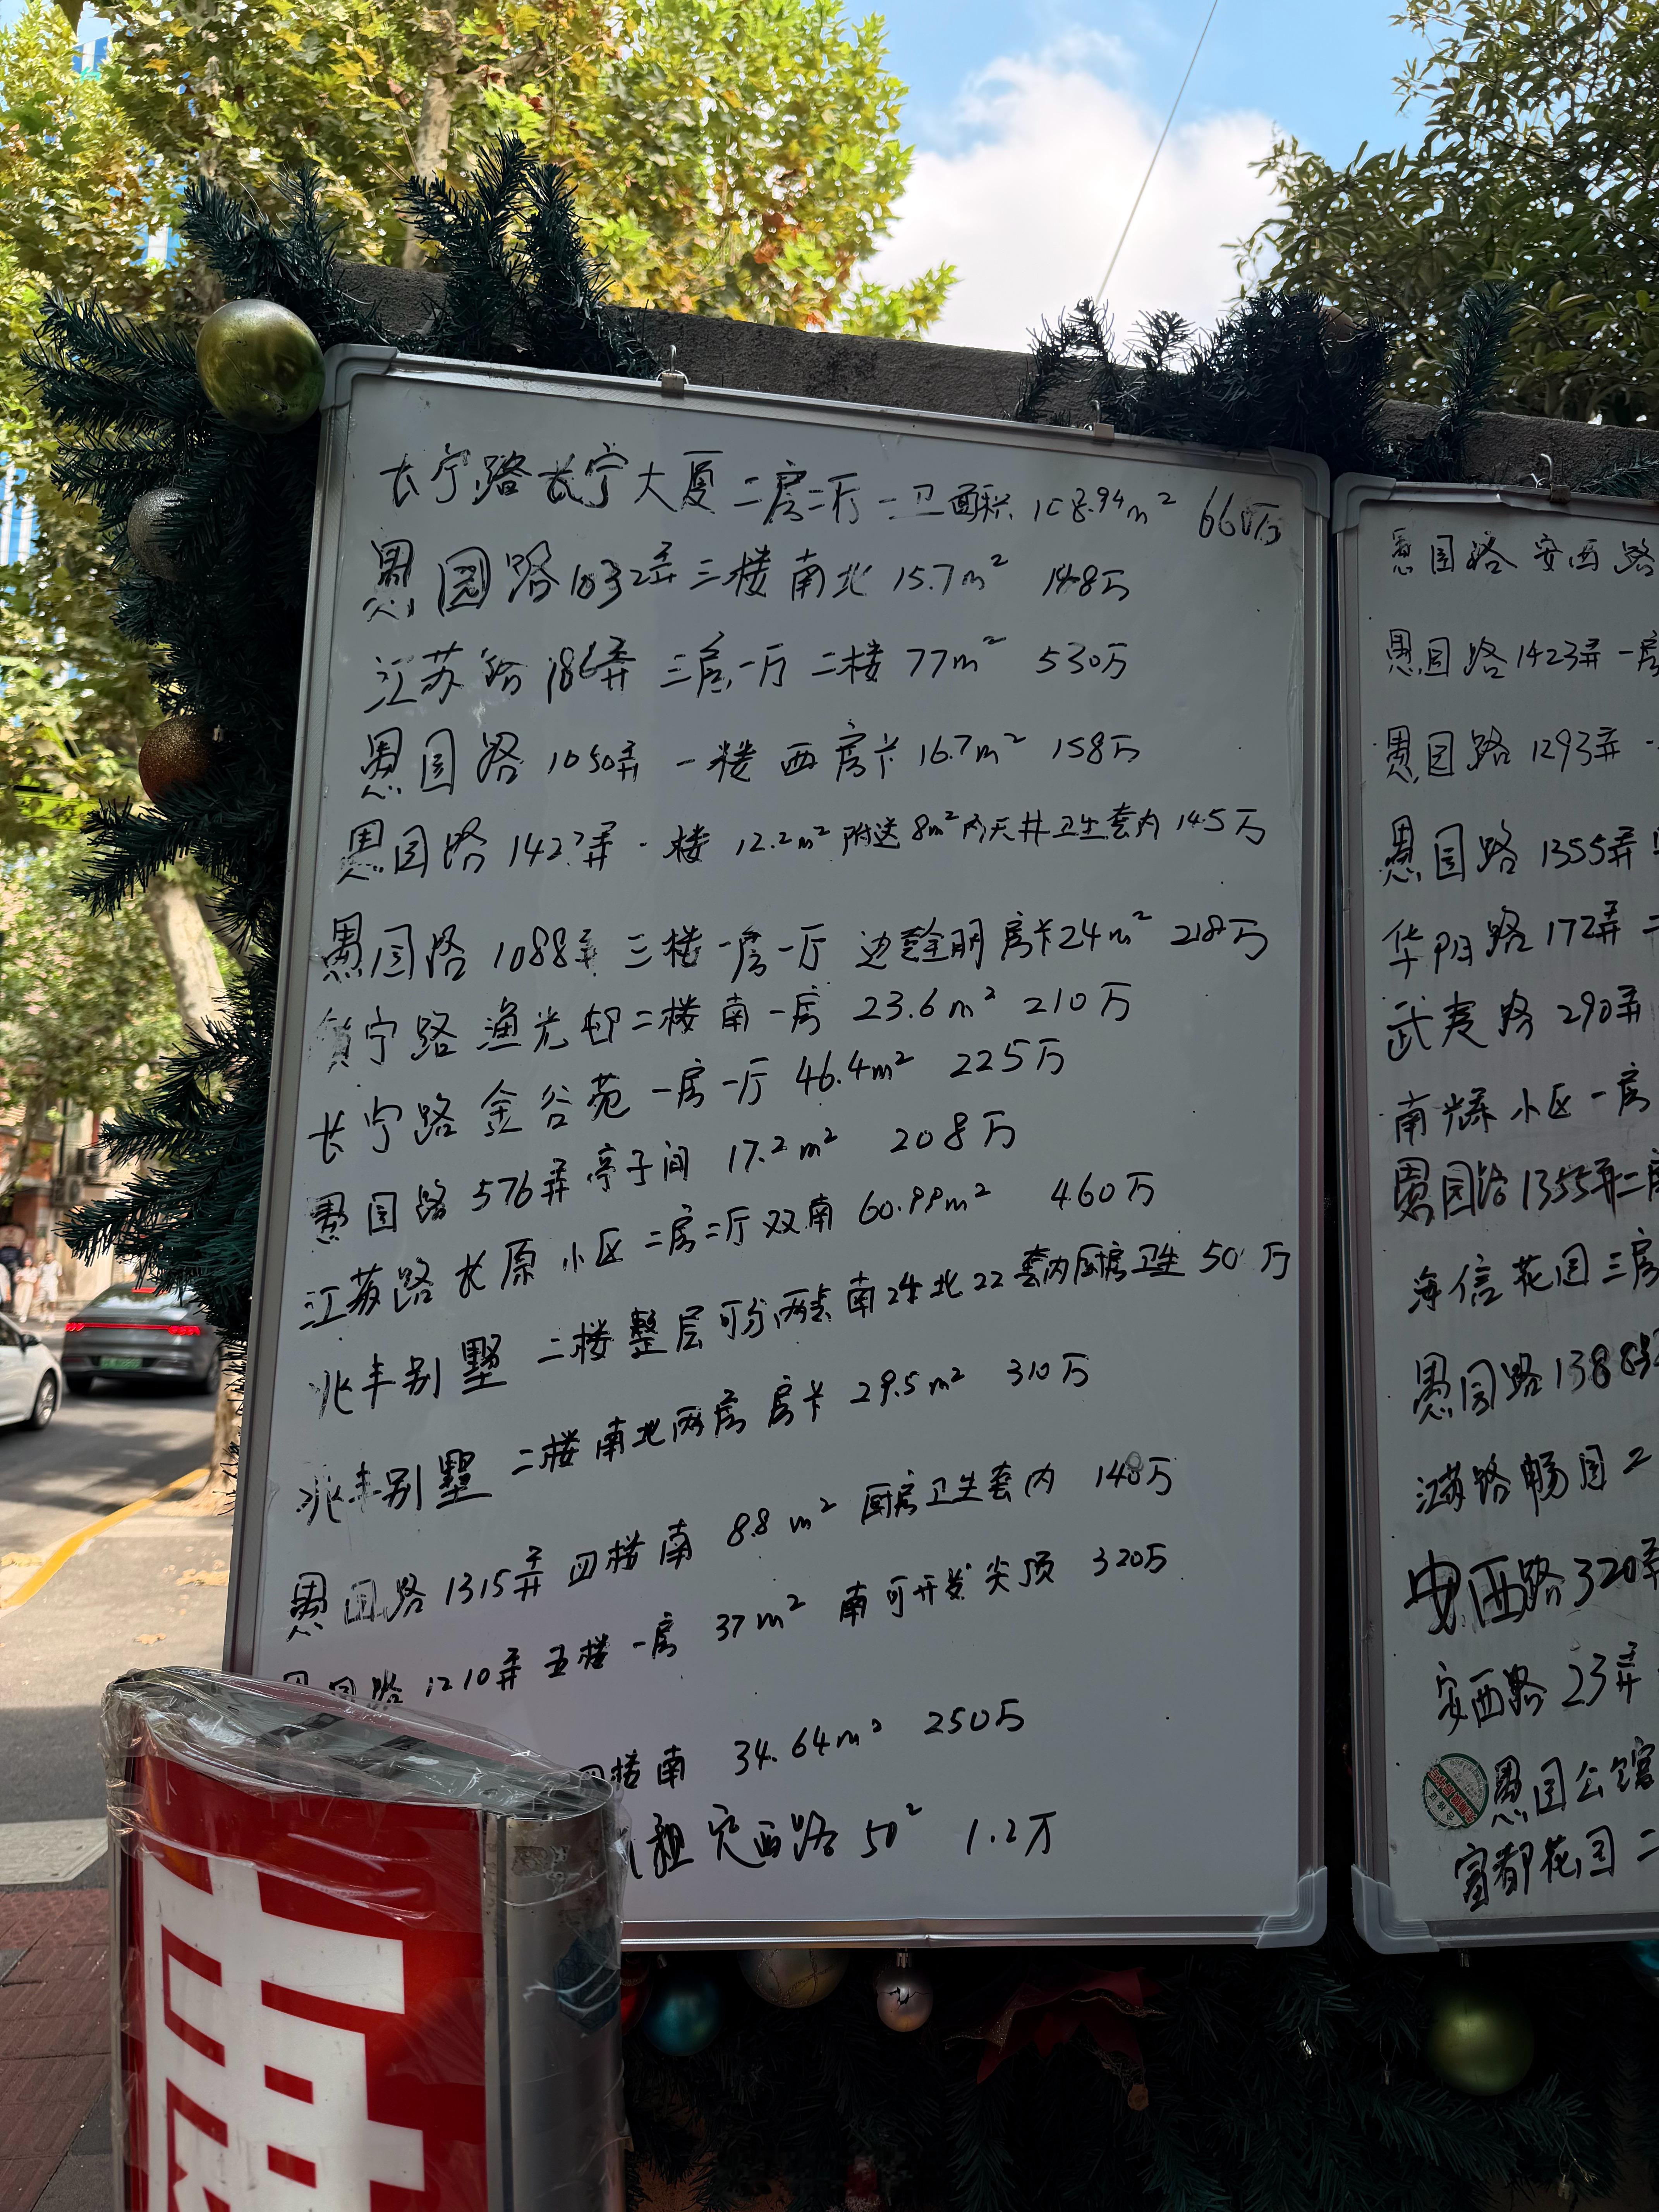 长宁路长宁大厦二房二厅一卫面积108.94m² 660万
愚园路1032弄三楼南北 15.7m² 148万
江苏路186弄 三房一厅 二楼 77m² 530万
愚园路1050弄 一楼 西 房卡 16.7m² 158万
愚园路142弄 一楼 12.2m² 附送8m²内天井卫生套内 145万
愚园路1088弄 三楼一房一厅 边套全明 房卡24m² 218万
镇宁路 渔光邨二楼南一房 23.6m² 210万
长宁路 金谷苑 一房一厅 46.4m² 225万
愚园路 576弄亭子间 17.2m² 208万
江苏路 长原小区 二房二厅双南 60.99m² 460万
兆丰别墅 二楼整层可分两套南24北22套内厨房卫生 50 万
兆丰别墅 二楼南北两房 房卡 29.5m² 310万
愚园路 1315弄 四楼南 8.8m² 厨房卫生套内 140万
愚园路 1210弄 五楼一房 37m² 南可开发尖顶 320万
四楼南 34.64m² 250万
租 定西路 50² 1.2万
愚园路 安西路
愚园路1423弄一房
愚园路 1293弄
愚园路 1355弄
华阳路172弄二
武夷路 290弄
南光小区一房
愚园路1355弄二房
海信花园三房
愚园路1388弄
江苏路畅园2
安西路320弄
安西路 23弄
愚园公馆
富都花园二